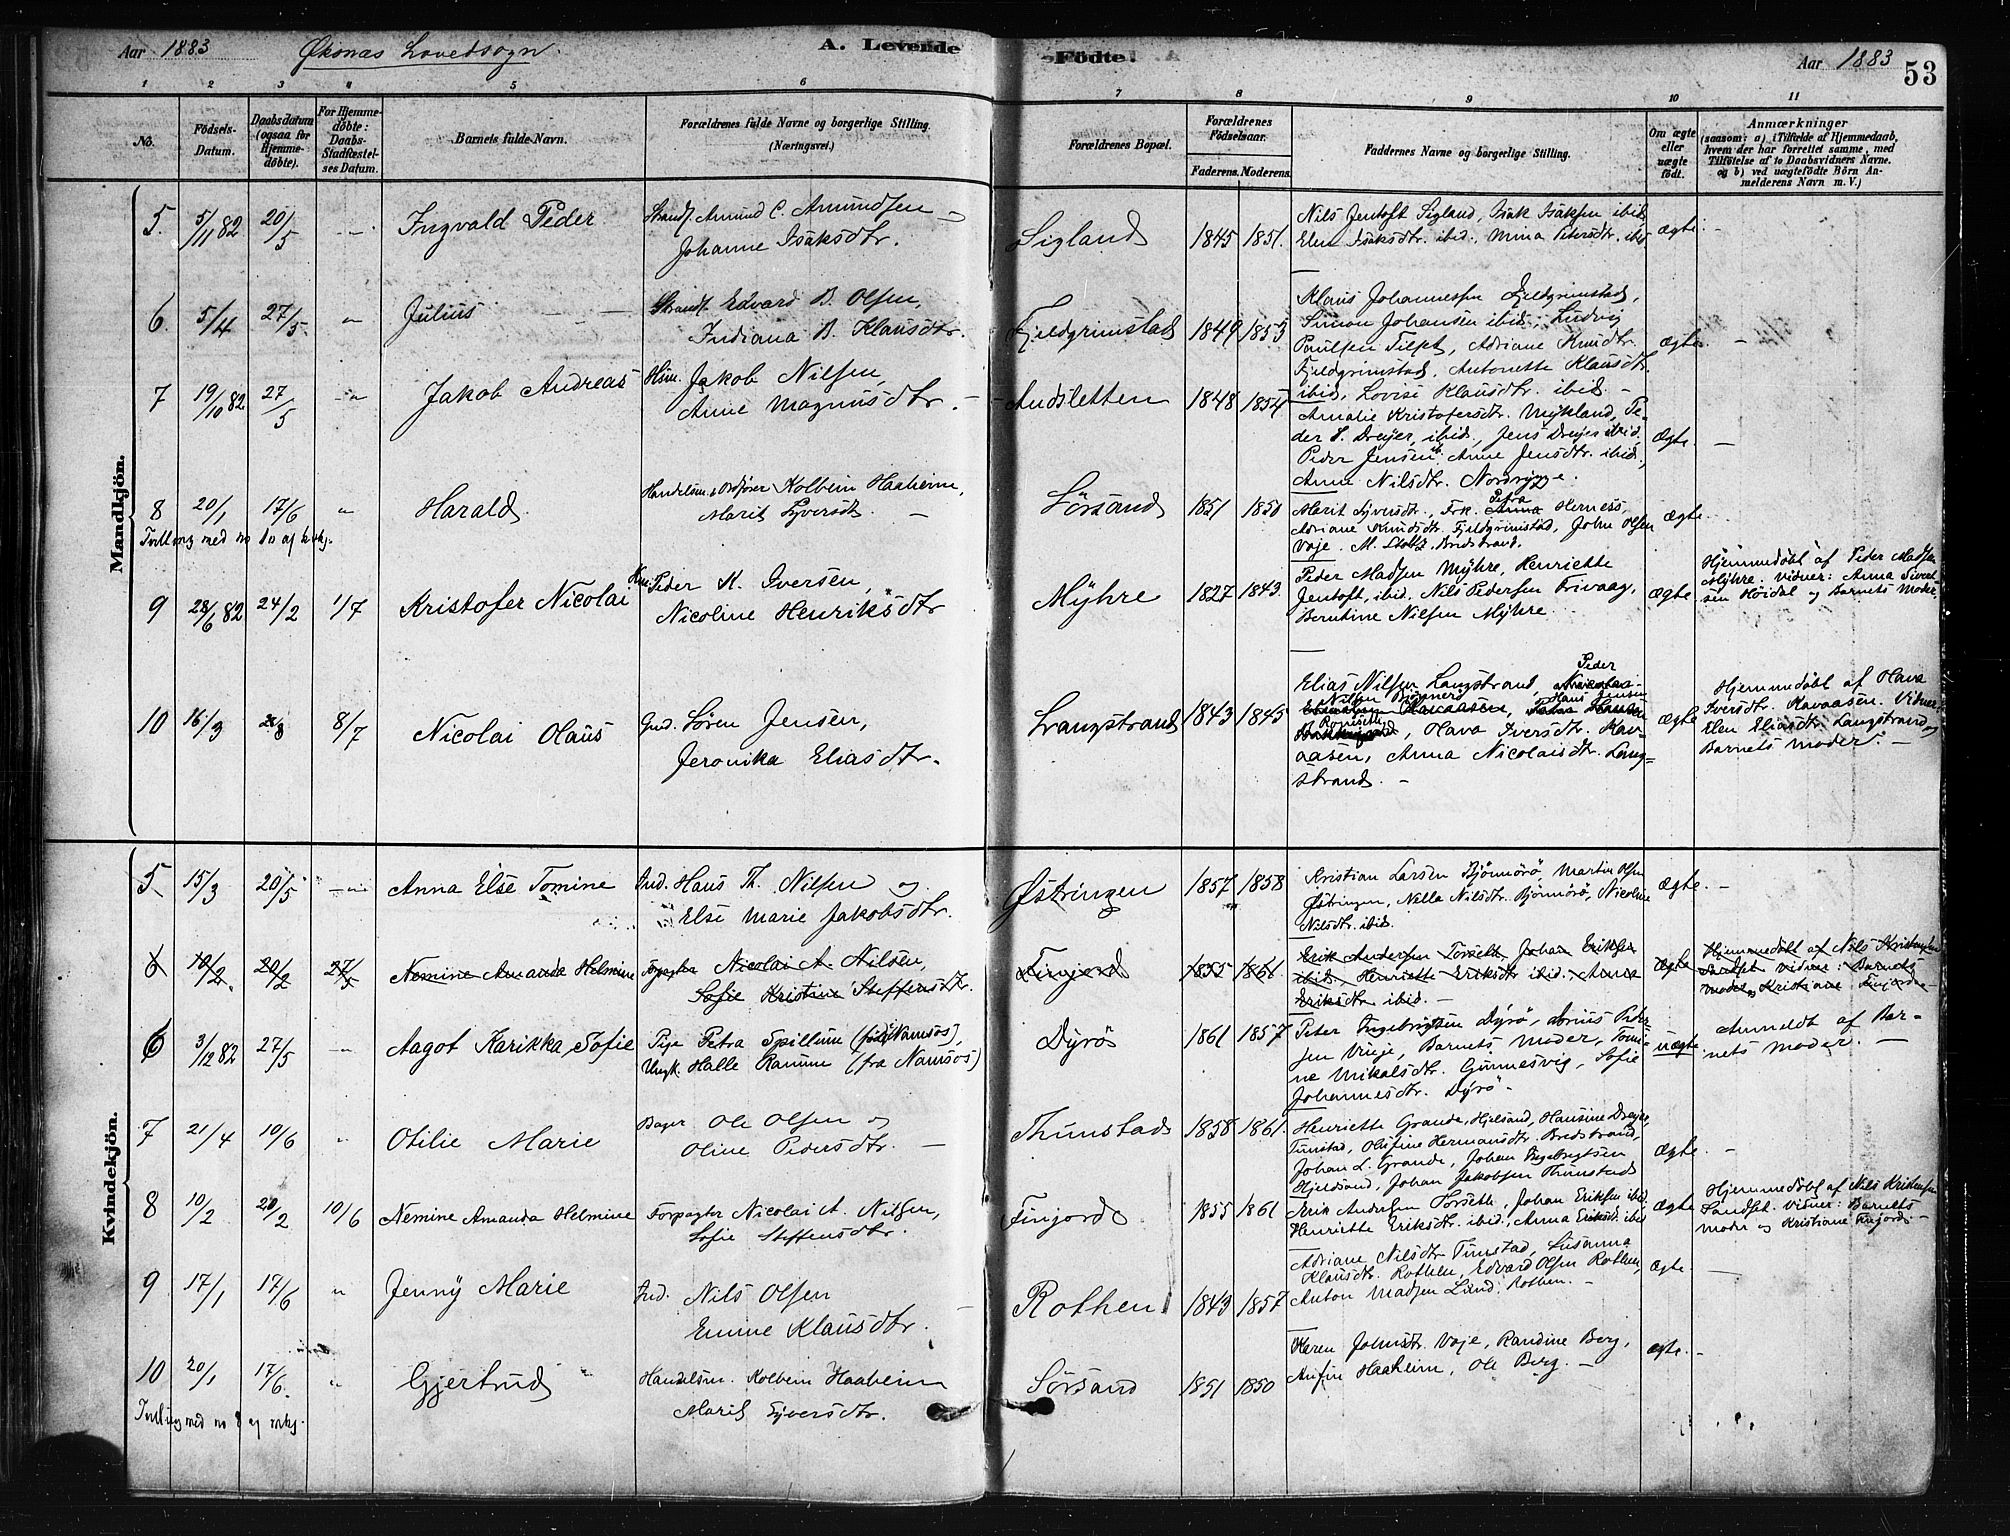 Aar 1883 Øksnæs Hovedsogn. A. Levende Födte. Aar 1883 53
1 2 3 4 5 6 7 8 9 10 11
No.
Födsels-Datum.
Daabsdatum (ogsaa for Hjemmedöbte).
For Hjemmedöbte: Daabs-Stadfæstelses Datum.
Barnets fulde Navn.
Forældrenes fulde Navne og borgerlige Stilling. (Næringsvei.)
Forældrenes Bopæl.
Forældrenes Födselsaar.
Faderens. Moderens.
Faddernes Navne og borgerlige Stilling.
Om ægte eller uægte födt.
Anmærkninger
(saasom: a) i Tilfælde af Hjemmedaab, hvem der har forrettet samme, med Tilföielse af to Daabsvidners Navne. og b) ved uægtefödte Börn Anmelderens Navn m. V.)
Mandkjön.
5. 5/11 82 20/5 — Ingvald Peder
Strands. Amund C. Amundsen —
Johanne Isaksdtr.
Sigland 1845 1851.
Nils Jentoft Sigland, Isak Isaksen ibid
Elen Isaksdtr. ibid., Mina Petersdtr. ibid
ægte. —
6. 5/4 27/5. " Julius — —
Strands. Edvard B. Olsen,
Indiana B. Klausdtr.
Fjeldgrimstad 1849 1853
Klaus Johannessen Fjeldgrimstad,
Simon Johansen ibid, Ludvig
Paulsen Tilset, Adriane Knudtr.
Fjeldgrimstad, Antonette Klausdtr.
ibid, Lovise Klausdtr. ibid —
Ægte. —
7 19/10 82 27/5 — Jakob Andreas
Hsm. Jakob Nilsen,
Anne Magnusdtr. —
Andsletten 1848 1854
Amalie Kristofersdtr. Mÿkland, Pe-
der S. Dreÿer, ibid., Jens Dreÿer ibid,
Peder Jensen ib. Anne Jensdtr. ibid.,
Anne Nilsdtr. Nordrÿgge.
Ægte. —
8 20/1 17/6 " Harald
Handelsm. & Ordfører Kolbein Haaheim,
Marit Sÿversdt. —
Sörsand 1851 1850
Marit Sÿversdtr., Frk. Petra Herness,
Adriane Knudsdtr. Fjeldgrimstad, John Olsen
Vaje. M. Stoltz. Bredstrand.
ægte. —
Tvilling med no 10 af kvkj.
9 28/6 82 24/2 1/7 Kristofer Nicolai
Hsm. Peder K. Iversen,
Nicoline Henriksdtr
Mÿhre 1827 1843.
Peder Madsen Mÿhre, Henriette
Jentoft, ibid, Nils Pedersen Frivaag,
Berntine Nilsen Mÿhre
ægte.
Hjemmedöbt af Peder Madsen
Mÿhre. Vidner: Anna Sivert-
sen Höidal og Barnets Moder.
10 16/3 8/7 Nicolai Olaus
Ind. Sören Jensen,
Jeronika Eliasdtr.
Langstrand 1843 1845
Elias Nilsen Langstrand, Peder
Nilsen Björnerö Hans Jensen
Hava Iversdtr. Kav-
aasen, Anna Nicolaisdtr. Lang-
strand. —
ægte
Hjemmedöbt af Hava
Iversdtr. Kavaasen. Vidner:
Elen Eliasdtr. Langstrand og
Barnets Moder. —
Kvindekjön.
5 15/3 20/5 — Anna Else Tomine
Ind. Hans Th. Nilsen og
Else Marie Jakobsdtr.
Østringen 1857 1858
Kristian Larsen Björnörö, Martin Olsen
Østringen, Nella Nilsdtr. Björnörö, Nicoline
Nilsdtr. ibid.
Ægte. —
6 10/2. 20/2 27/5 Nemine Amanda Helmine
Forpagter Nicolai A. Nilsen,
Sofie Kristine Steffensdtr.
Finjord 1855 1861
Erik Andersen Torseth, Johan Eriksen
ibid, Henriette Eriksdtr ibid. Anna
Eriksdtr ibid. —
Ægte
Hjemmedöbt af Nils Kristensen
Sandset Vidner: Barnets
Moder og Kristiane Finjord —
6 3/12 82 27/5 — Aagot Karikka Sofie
Pige Petra Spillum (fra Namsos),
Ungk. Halle Ranum (fra Namsos)
Dÿrö 1861 1857
Peter Ingebrigtsen Dÿrö, Dorius Peder-
sen Vrieje, Barnets Moder, Tomi-
ne Mikalsdtr. Gunnesvig, Sofie
Johannesdtr. Dÿrö —
uægte
Anmeldt af Bar-
nets Moder. —
7 21/4 10/6 " Otilie Marie
Bager Ole Olsen og
Oline Pedersdtr. —
Thunstad 1858 1861.
Henriette Grande, Hjelsand, Hansine Dreyer,
Tunstad, Olefine Hermansdtr. Bredstrand,
Johan L. Grande, Johan Ingebrigtsen
Hjeldsand, Johan Jakobsen Thunstad
Ægte. —
8 10/2 20/2 10/6 Nemine Amanda Helmine
Forpagter Nicolai A. Nilsen,
Sofie Steffensdtr.
Finjord 1855 1861
Erik Andersen Torseth, Johan Eriksen ibid,
Henriette Eriksdtr. ibid., Anna Eriksd. ibid
Ægte
Hjemmedöbt af Nils Kristensen
Sandset. Vidner: Barnets
Moder og Kristiane Finjord —
9 17/1 17/6 " Jennÿ Marie
Ind. Nils Olsen
Emme Klausdtr. —
Rothen 1843 1857
Adriane Nilsdtr Tunstad, Susanna
Klausdtr. Rothen, Edvard Olsen Rothen,
Anton Madsen Lund, Rothen. —
ægte. —
10 20/1 17/6. " Gjertrud
Handelsm. Kolbein Haaheim
Marit Sÿversdtr.
Sörsand 1851 1850
Karen Johnsdtr Vaje, Randine Berg,
Anfin Haaheim, Ole Berg. —
ægte. —
Tvilling med no 8 af mkj.